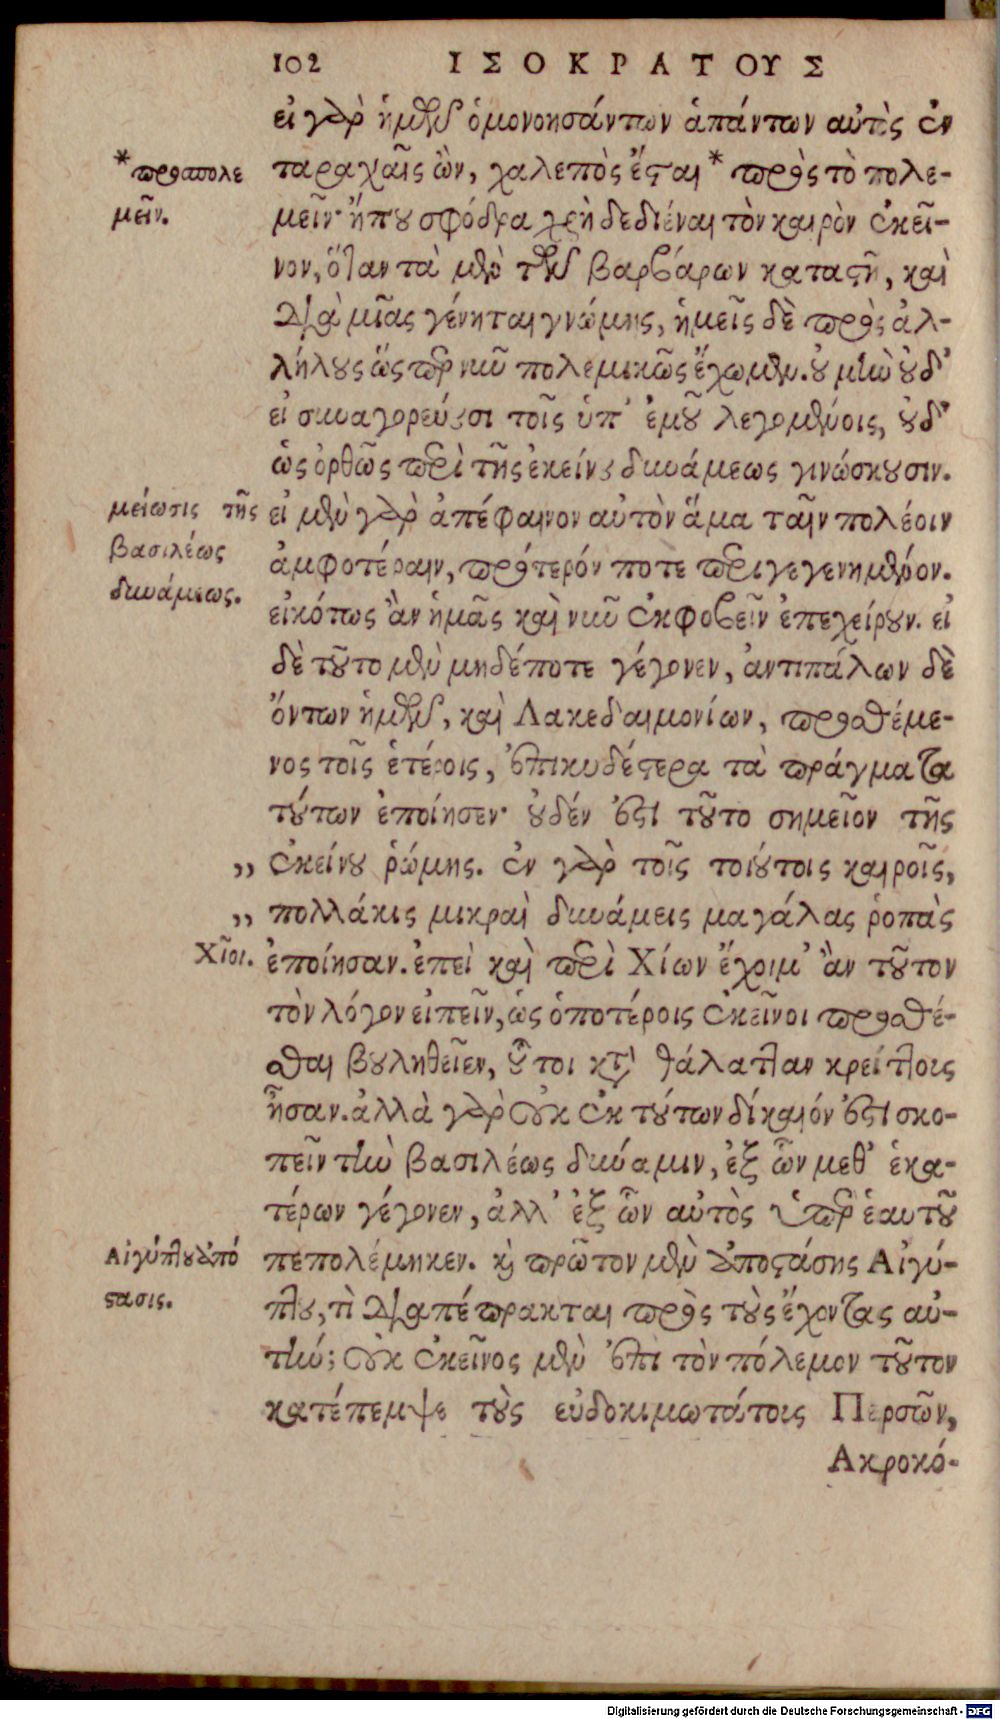 102 ΙΣΟΚΡΑΤΟΥΣ
εἰ γὰρ ἡμῶν ὁμονοησάντων ἁπάντων αὐτὸς ἐν
ταραχαῖς ὢν, χαλεπὸς ἔσται * πρὸς τὸ πολε-
* προσπολε
μεῖν.
μεῖν· ἤπου σφόδρα χρὴ δεδιέναι τὸν καιρὸν ἐκεῖ-
νον, ὅταν τὰ μὲν τῶν βαρβάρων καταστῇ, καὶ
διὰ μιᾶς γένηται γνώμης, ἡμεῖς δὲ πρὸς ἀλ-
λήλους ὥσπερ νῦν πολεμικῶς ἔχωμεν. οὐ μὴν οὐδ'
εἰ συναγορεύουσι τοῖς ὑπ' ἐμοῦ λεγομένοις, οὐδ'
ὡς ὀρθῶς περὶ τῆς ἐκείνου δυνάμεως γινώσκουσιν.
μείωσις τῆς
βασιλέως
δυνάμεως.
εἰ μὲν γὰρ ἀπέφαινον αὐτὸν ἅμα ταῖν πολέοιν
ἀμφοτέραιν, πρότερόν ποτε περιγεγενημένον.
εἰκότως ἂν ἡμᾶς καὶ νῦν ἐκφοβεῖν ἐπεχείρουν. εἰ
δὲ τοῦτο μὲν μηδέποτε γέγονεν, ἀντιπάλων δὲ
ὄντων ἡμῶν, καὶ Λακεδαιμονίων, προσθέμε-
νος τοῖς ἑτέροις, ἐπικυδέστερα τὰ πράγματα
τούτων ἐποίησεν· οὐδέν ἐστι τοῦτο σημεῖον τῆς
,, ἐκείνου ῥώμης. ἐν γὰρ τοῖς τοιούτοις καιροῖς,
,, πολλάκις μικραὶ δυνάμεις μαγάλας ῥοπὰς
Χῖοι.
ἐποίησαν. ἐπεὶ καὶ περὶ Χίων ἔχοιμ' ἂν τοῦτον
τὸν λόγον εἰπεῖν, ὡς ὁποτέροις ἐκεῖνοι προσθέ-
σθαι βουληθεῖεν, οὗτοι κτ̀ θάλατταν κρείττοις
ἦσαν. ἀλλὰ γὰρ οὐκ ἐκ τούτων δίκαιόν ἐστι σκο-
πεῖν τὴν βασιλέως δύναμιν, ἐξ ὧν μεθ' ἑκα-
τέρων γέγονεν, ἀλλ' ἐξ ὧν αὐτὸς ὑπὲρ ἑαυτοῦ
Αἰγύπτου ἀπό
στασις.
πεπολέμηκεν. καὶ πρῶτον μὲν ἀποστάσης Αἰγύ-
πτου, τὶ διαπέπρακται πρὸς τοὺς ἔχοντας αὐ-
τήν; οὐκ ἐκεῖνος μὲν ἐπὶ τὸν πόλεμον τοῦτον
κατέπεμψε τοὺς εὐδοκιμωτάτοις Περσῶν,
Ακροκό-
Digitalisierung gefördert durch die Deutsche Forschungsgemeinschaft - DFG